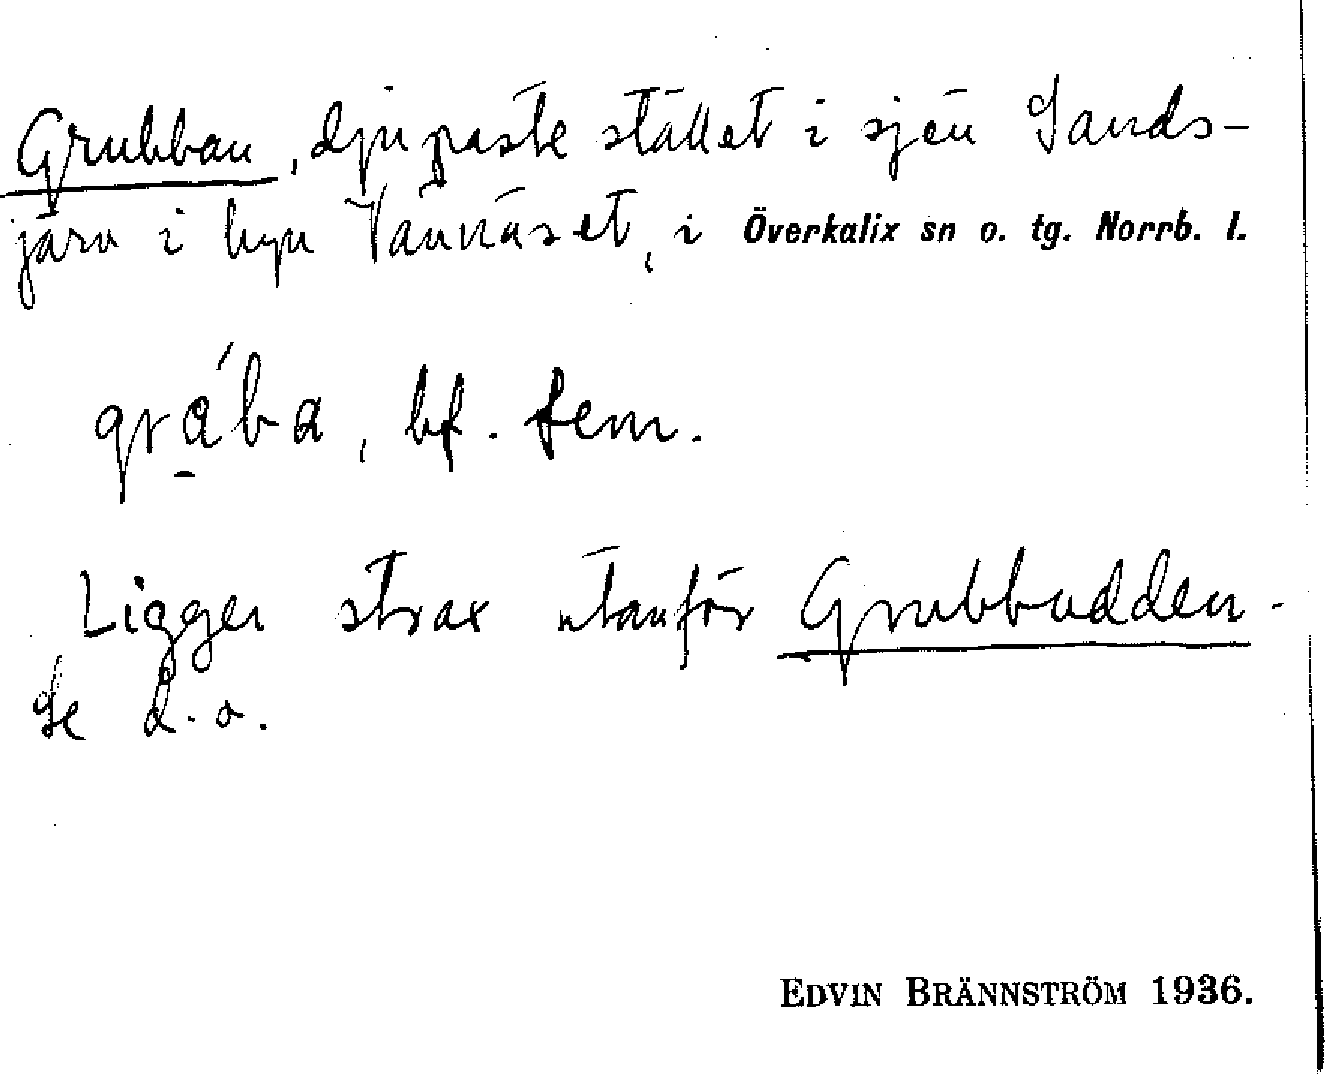 Grubban, djupaste stället i sjön Sands-
järv i byn Vännäset, i Överkalix sn o. tg. Norrb. l.
grába, bf. fem.
Ligger strax utanför Grubbudden.
Se d. o.
EDVIN BRÄNNSTRÖM 1936.